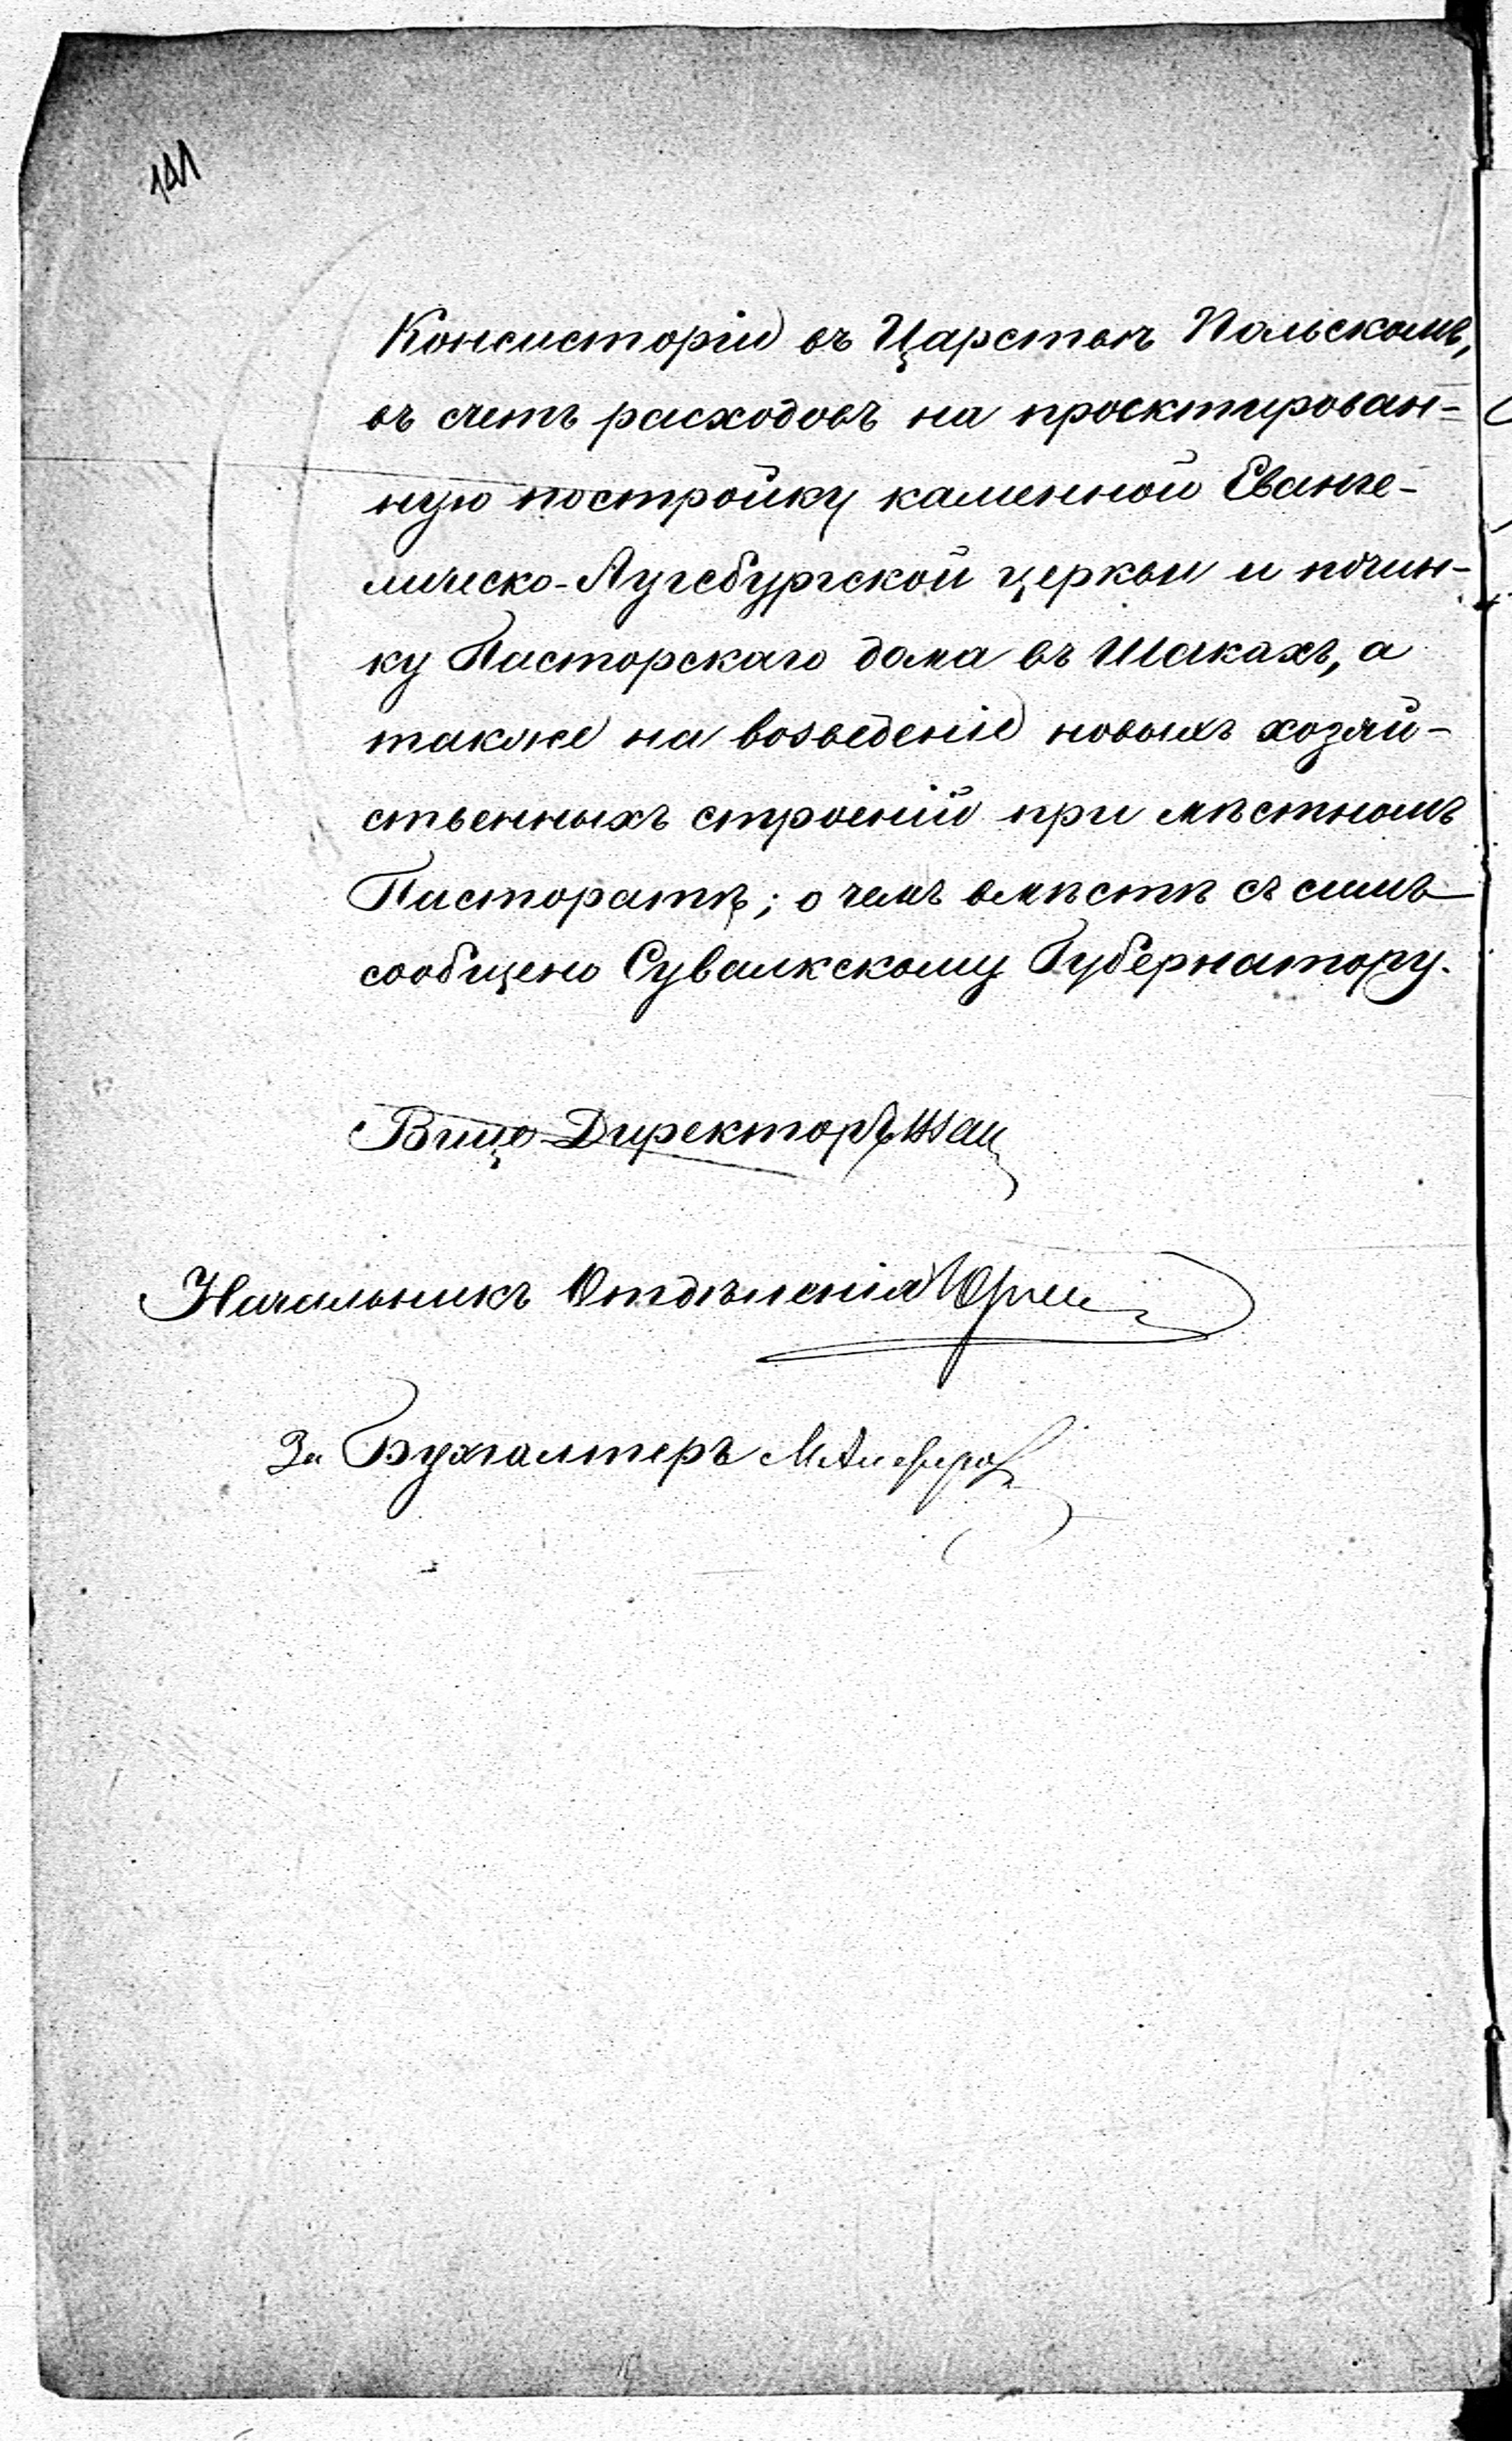 141
Консисторіи въ Царствѣ Польскомъ,
въ счетъ расходовъ на проектирован-
ную постройку каменной Еванге-
лическо-Аугсбургской церкви и почин-
ку Пасторскаго дома въ Шакахъ, а
также на возведеніе новыхъ хозяй-
ственныхъ строеній при мѣстномъ
Пасторатѣ; о чемъ вмѣстѣ съ симъ
сообщено Сувалкскому Губернатору.
Вице-Директоръ
Начальникъ Отдѣленія
За Бухгалтеръ